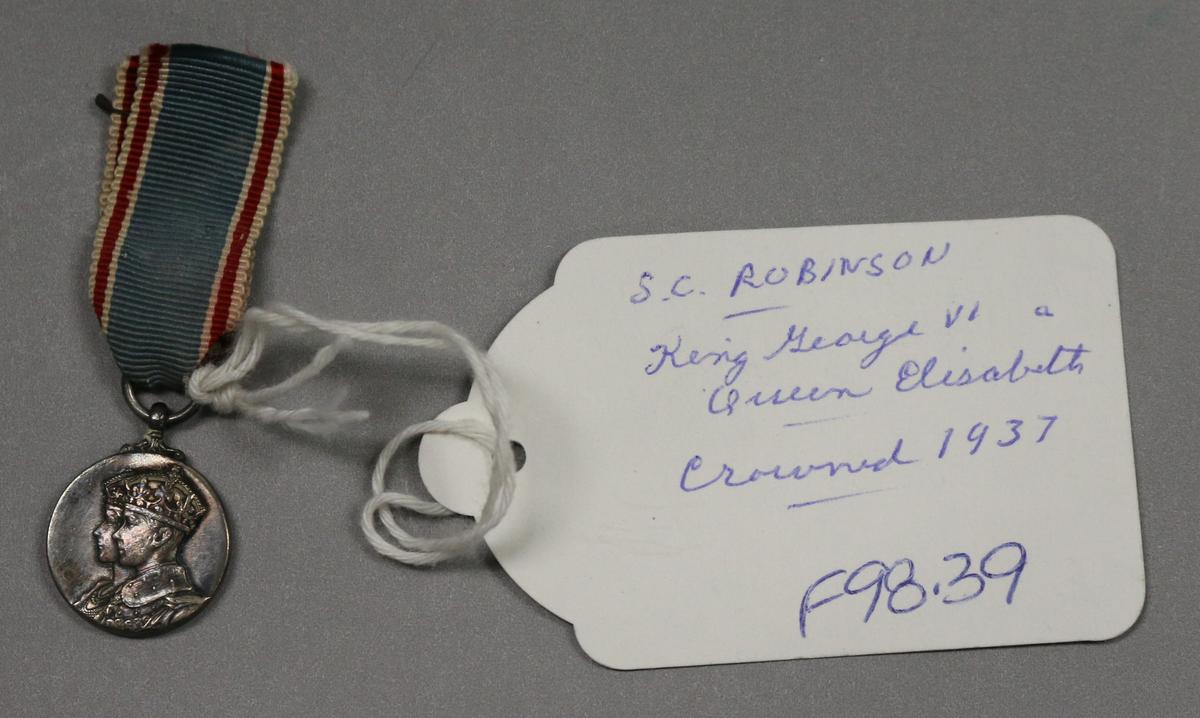 S.C. ROBINSON
King George VI a
Queen Elisabeth
Crowned 1937
F98.39